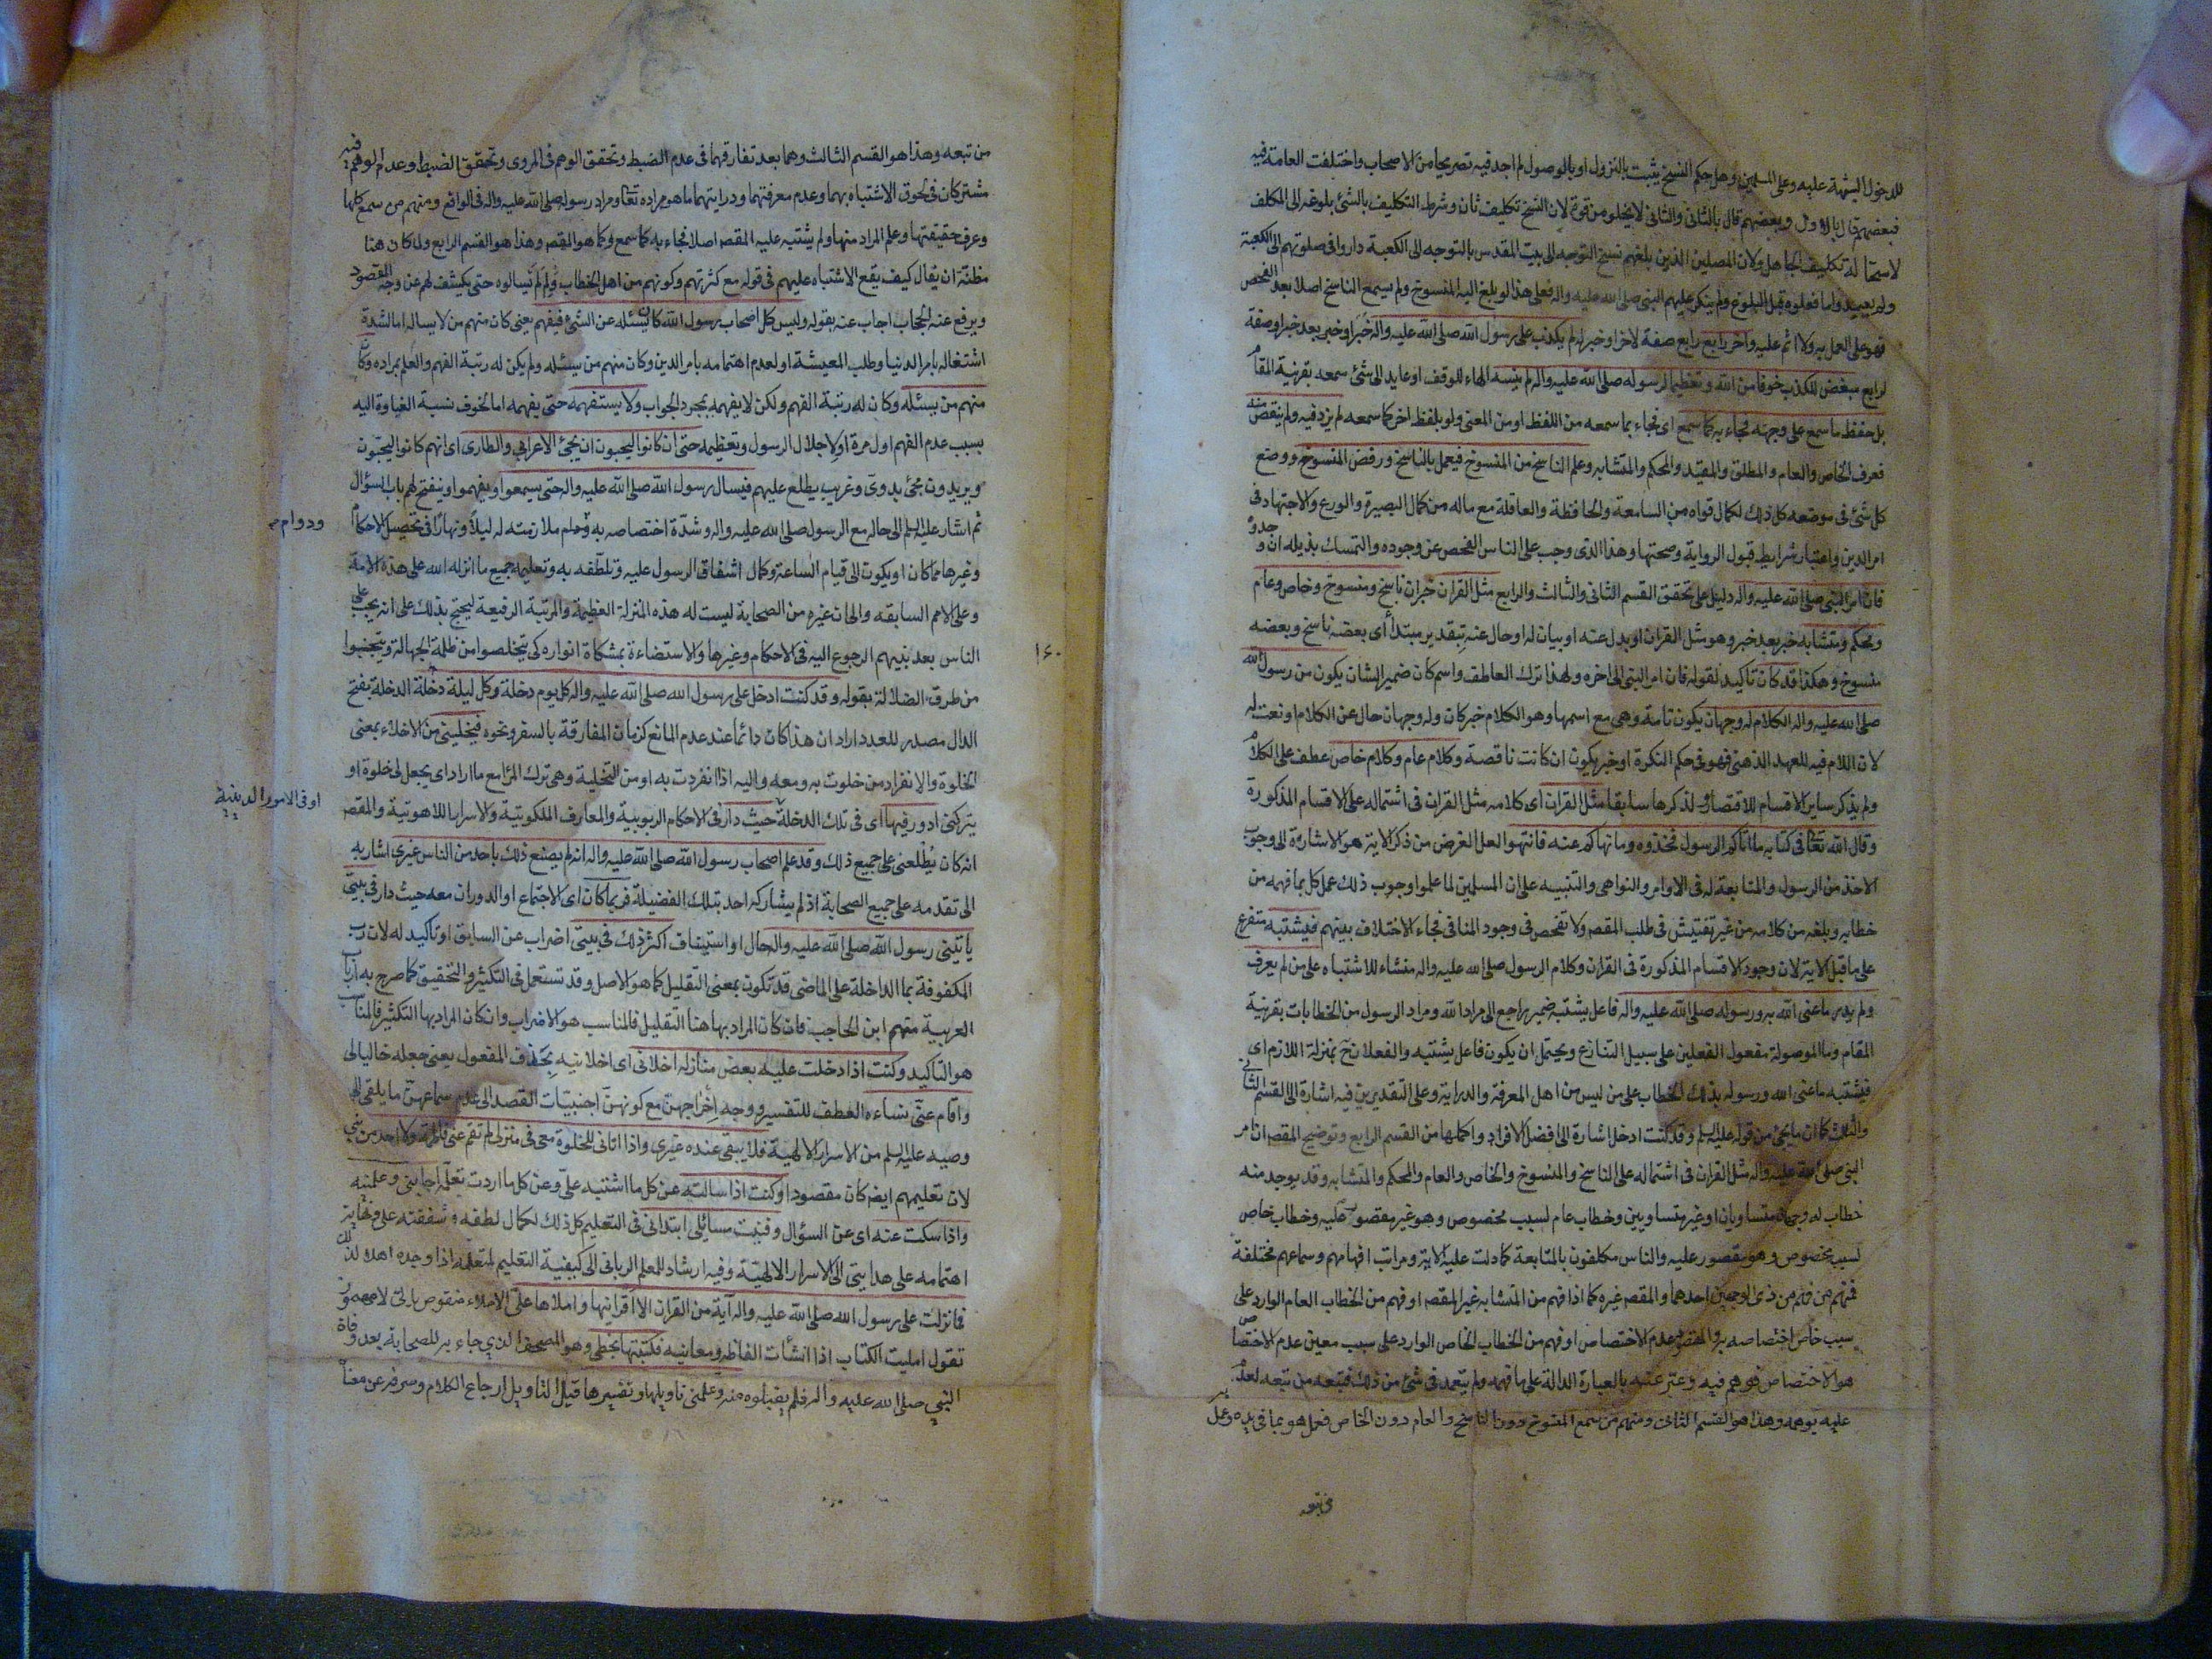 للدخول الشبهة عليه وعلى المسلمين وهل حكم النسخ يثبت بالنزول او بالوصول لم اجد فيه تصريحا من الاصحاب واختلفت العامة فيه
فبعضهم قال بالاول وبعضهم قال بالثانى والثانى لا يخلو من قوة لان النسخ تكليف ثان وشرط التكليف بالشئ بلوغه الى المكلف
لاستحالة تكليف الجاهل ولان المصلين الذين بلغهم نسخ التوجه الى بيت المقدس بالتوجه الى الكعبة داروا فى صلوتهم الى الكعبة
ولم يعيدوا ما فعلوه قبل البلوغ ولم ينكر عليهم النبى صلى الله عليه واله فعلى هذا لو بلغ اليه المنسوخ ولم يسمع الناسخ اصلا بعد الفحص
فهو على العمل به ولا اثم عليه واخر رابع رابع صفة لاخر او خبر له لم يكذب على رسول الله صلى الله عليه واله خبر او خبر بعد خبر او صفة
لرابع مبغض للكذب خوفا من الله وتعظيما لرسوله صلى الله عليه واله لم ينسه الهاء للوقف او عايد الى شئ سمعه بقرينة المقام
بل حفظ ما سمع على وجهه فجاء به كما سمع اى فجاء بما سمعه من اللفظ او من المعنى ولو بلفظ اخر كما سمعه لم يزد فيه ولم ينقص منه
فعرف الخاص والعام والمطلق والمقيد والمحكم والمتشابه وعلم الناسخ من المنسوخ فيعمل بالناسخ ورفض المنسوخ ووضع
كل شئ فى موضعه كل ذلك لكمال قواه من السامعة والحافظة والعاقلة مع ماله من كمال البصيرة والورع والاجتهاد فى
امر الدين واعتبار شرايط قبول الرواية وصحتها وهذا الذى وجب على الناس الفحص عن وجوده والتمسك بذيله ان وجدوه
فان امر النبى صلى الله عليه واله دليل على تحقق القسم الثانى والثالث والرابع مثل القران خبران ناسخ ومنسوخ وخاص وعام
ومحكم ومتشابه خبر بعد خبر وهو مثل القران او بدل عنه او بيان له او حال عنه بتقدير مبتدأ اى بعضه ناسخ وبعضه
منسوخ وهكذا قد كان تأكيد لقوله فان امر النبى الى اخره ولهذا ترك العاطف واسم كان ضمير الشان يكون من رسول الله
صلى الله عليه واله الكلام له وجهان يكون تامة وهى مع اسمها وهو الكلام خبر كان وله وجهان حال عن الكلام او نعت له
لان اللام فيه للعهد الذهنى فهو فى حكم النكرة او خبر يكون ان كانت ناقصة وكلام عام وكلام خاص عطف على الكلام
ولم يذكر ساير الاقسام للاقتصار ولذكرها سابقا مثل القران اى كلامه مثل القران فى اشتماله على الاقسام المذكورة
وقال الله تعالى فى كتابه ما اتاكم الرسول فخذوه وما نهاكم عنه فانتهوا لعل الغرض من ذكر الاية هو الاشارة الى وجوب
الاخذ من الرسول والمتابعة له فى الاوامر والنواهى والتنبيه على ان المسلمين لما علموا وجوب ذلك عمل كل بما فهمه من
خطابه وبلغه من كلامه من غير تفتيش فى طلب المقصد ولا تفحص فى وجود المنافى فجاء الاختلاف بينهم فيشتبه متفرع
على ما قبل الاية لان وجود الاقسام المذكورة فى القران وكلام الرسول صلى الله عليه واله منشاء للاشتباه على من لم يعرف
ولم يدر ما عنى الله به ورسوله صلى الله عليه واله فاعل يشتبه ضمير راجع الى مراد الله ومراد الرسول من الخطابات بقرينة
المقام وما الموصولة مفعول الفعلين على سبيل التنازع ويحتمل ان يكون فاعل يشتبه والفعلان ح بمنزلة اللازم اى
فيشتبه ما عنى الله ورسوله بذلك الخطاب على من ليس من اهل المعرفة والدراية وعلى التقديرين فيه اشارة الى القسم الثانى
والثالث كما ان ما يجئ من قوله عليه السلم وقد كنت ادخل اشارة الى افضل الافراد واكملها من القسم الرابع وتوضيح المقصد ان امر
النبى صلى الله عليه واله مثل القران فى اشتماله على الناسخ والمنسوخ والخاص والعام والمحكم والمتشابه وقد يوجد منه
خطاب له وجهان متساويان او غير متساويين وخطاب عام لسبب مخصوص وهو غير مقصور عليه وخطاب خاص
لسبب مخصوص وهو مقصور عليه والناس مكلفون بالمتابعة كما دلت عليه الاية ومراتب افهامهم وسماعهم مختلفة
فمنهم من فهم من ذى الوجهين احدهما والمقصد غيره كما اذا فهم من المتشابه غير المقصد او فهم من الخطاب العام الوارد على
سبب خاص اختصاصه به والمقصود عدم الاختصاص او فهم من الخطاب الخاص الوارد على سبب معين عدم الاختصاص
هو الاختصاص فوهم فيه وعبر عنه بالعبارة الدالة على ما فهمه ولم يتعمد فى شئ من ذلك فتبعه من تبعه لعدم
عليه بوهمه وهذا هو القسم الثانى ومنهم من سمع المنسوخ دون الناسخ والعام دون الخاص فعمل هو بما فى يده وعمل
من تبعه وهذا هو القسم الثالث وهما بعد تفارقهما فى عدم الضبط وتحقق الوهم فى المروى وتحقق الضبط وعدم الوهم فيه
مشتركان فى لحوق الاشتباه بهما وعدم معرفتهما ودرايتهما ما هو مراده تعالى ومراد رسوله صلى الله عليه واله فى الواقع ومنهم من سمع كلها
وعرف حقيقتها وعلم المراد منها ولم يشتبه عليه المقصد اصلا فجاء به كما سمع وكما هو المقصد وهذا هو القسم الرابع ولما كان هنا
مظنة ان يقال كيف يقع الاشتباه عليهم فى قوله مع كثرتهم وكونهم من اهل الخطاب ولم لم يسالوه حتى يكشف لهم عن وجه المقصود
ويرفع عنه الحجاب اجاب عنه بقوله وليس كل اصحاب رسول الله كان يسئله عن الشئ فيفهم يعنى كان منهم من لا يساله اما لشدة
اشتغاله بامر الدنيا وطلب المعيشة او لعدم اهتمامه بامر الدين وكان منهم من يسئله ولم يكن له رتبة الفهم والعلم بمراده وكان
منهم من يسئله وكان له رتبة الفهم ولكن لا يفهمه بمجرد الجواب ولا يستفهمه حتى يفهمه اما لخوف نسبة الغباوة اليه
بسبب عدم الفهم اول مرة او لاجلال الرسول وتعظيمه حتى ان كانوا ليحبون ان يجئ الاعرابي والطارى اى انهم كانوا ليحبون
ويريدون مجئ بدوى وغريب يطلع عليهم فيسال رسول الله صلى الله عليه واله حتى يسمعوا ويفهموا وينفتح لهم باب السؤال
ثم اشار عليه السلم الى حاله مع الرسول صلى الله عليه واله وشدة اختصاصه به وملازمته له ليلاً ونهارًا فى تحصيل الاحكام
ودوام
وغيرها مما كان او يكون الى قيام الساعة وكمال اشفاق الرسول عليه وتلطفه به وتعليمه جميع ما انزله الله على هذه الامة
وعلى الامم السابقه والى ان غيره من الصحابة ليست له هذه المنزلة العظيمة والمرتبة الرفيعة ليحتج بذلك على انه يجب على
الناس بعد نبيهم الرجوع اليه فى الاحكام وغيرها والاستضاءة بمشكاة انواره كى يتخلصوا من ظلمة الجهالة ويتجنبوا
١٤٠
من طرق الضلالة بقوله وقد كنت ادخل على رسول الله صلى الله عليه واله كل يوم دخلة وكل ليلة دخلة الدخلة بفتح
الدال مصدر للعدد اراد ان هذا كان دائما عند عدم المانع كزمان المفارقة بالسفر ونحوه فيخلينى من الاخلاء بمعنى
الخلوة والانفراد من خلوت به ومعه واليه اذا انفردت به او من التخلية وهى ترك المرء مع ما اراد اى يجعل لى خلوة او
يتركنى ادور فيها اى فى تلك الدخلة حيث دار فى الاحكام الربوبية والمعارف الملكوتية والاسرار اللاهوتية والمقصد
او فى الامور الدينية
انه كان يُطلعنى على جميع ذلك وقد علم اصحاب رسول الله صلى الله عليه واله انه لم يصنع ذلك باحد من الناس غيرى اشار به
الى تقدمه على جميع الصحابة اذ لم يشاركه احد بتلك الفضيلة فربما كان اى الاجتماع او الدوران معه حيث دار فى بيتى
ياتينى رسول الله صلى الله عليه واله حال او استيناف اكثر ذلك فى بيتى اضراب عن السابق او تأكيد له لان رب
المكفوفة بما الداخلة على الماضى قد تكون بمعنى التقليل كما هو الاصل وقد تستعمل فى التكثير والتحقيق كما صرح به ارباب
العربية منهم ابن الحاجب فان كان المراد بها هنا التقليل فالمناسب هو الاضراب وان كان المراد بها التكثير فالمناسب
هو التاكيد وكنت اذا دخلت عليه بعض منازله اخلانى اى اخلا بيته بحذف المفعول يعنى جعله خاليا لى
واقام عنى نساءه العطف للتفسير ووجه اخراجهن مع كونهن اجنبيات القصد الى عدم سماعهن ما يلقى الى
وصيه عليه السلم من الاسرار الالهية فلا يبقى عنده غيرى واذا اتانى للخلوة معى فى منزلى لم تقم عنى فاطمة ولا احد من بنى
لان تعليمهم ايضا كان مقصودا وكنت اذا سالته عن كل ما اشتبه علىّ وعن كل ما اردت تعلمه اجابنى وعلمنيه
واذا سكت عنه اى عن السؤال وفنيت مسائلى ابتدانى فى التعليم كل ذلك لكمال لطفه وشفقته على ونهاية
اهتمامه على هدايتى الى الاسرار الالهية وفيه ارشاد للمعلم الربانى الى كيفية التعليم لمتعلمه اذا وجده اهلا لذلك
فما نزلت على رسول الله صلى الله عليه واله آية من القران الا اقرانيها واملاها علىّ الاملاء منقوص يائى لا مهموز
تقول امليت الكتاب اذا انشأت الفاظه ومعانيه فكتبتها بخطى وهو المصحف الذي جاء به للصحابة بعد وفاة
النبي صلى الله عليه واله فلم يقبلوه منه وعلمنى تاويلها وتفسيرها قيل التاويل ارجاع الكلام وصرفه عن معناه